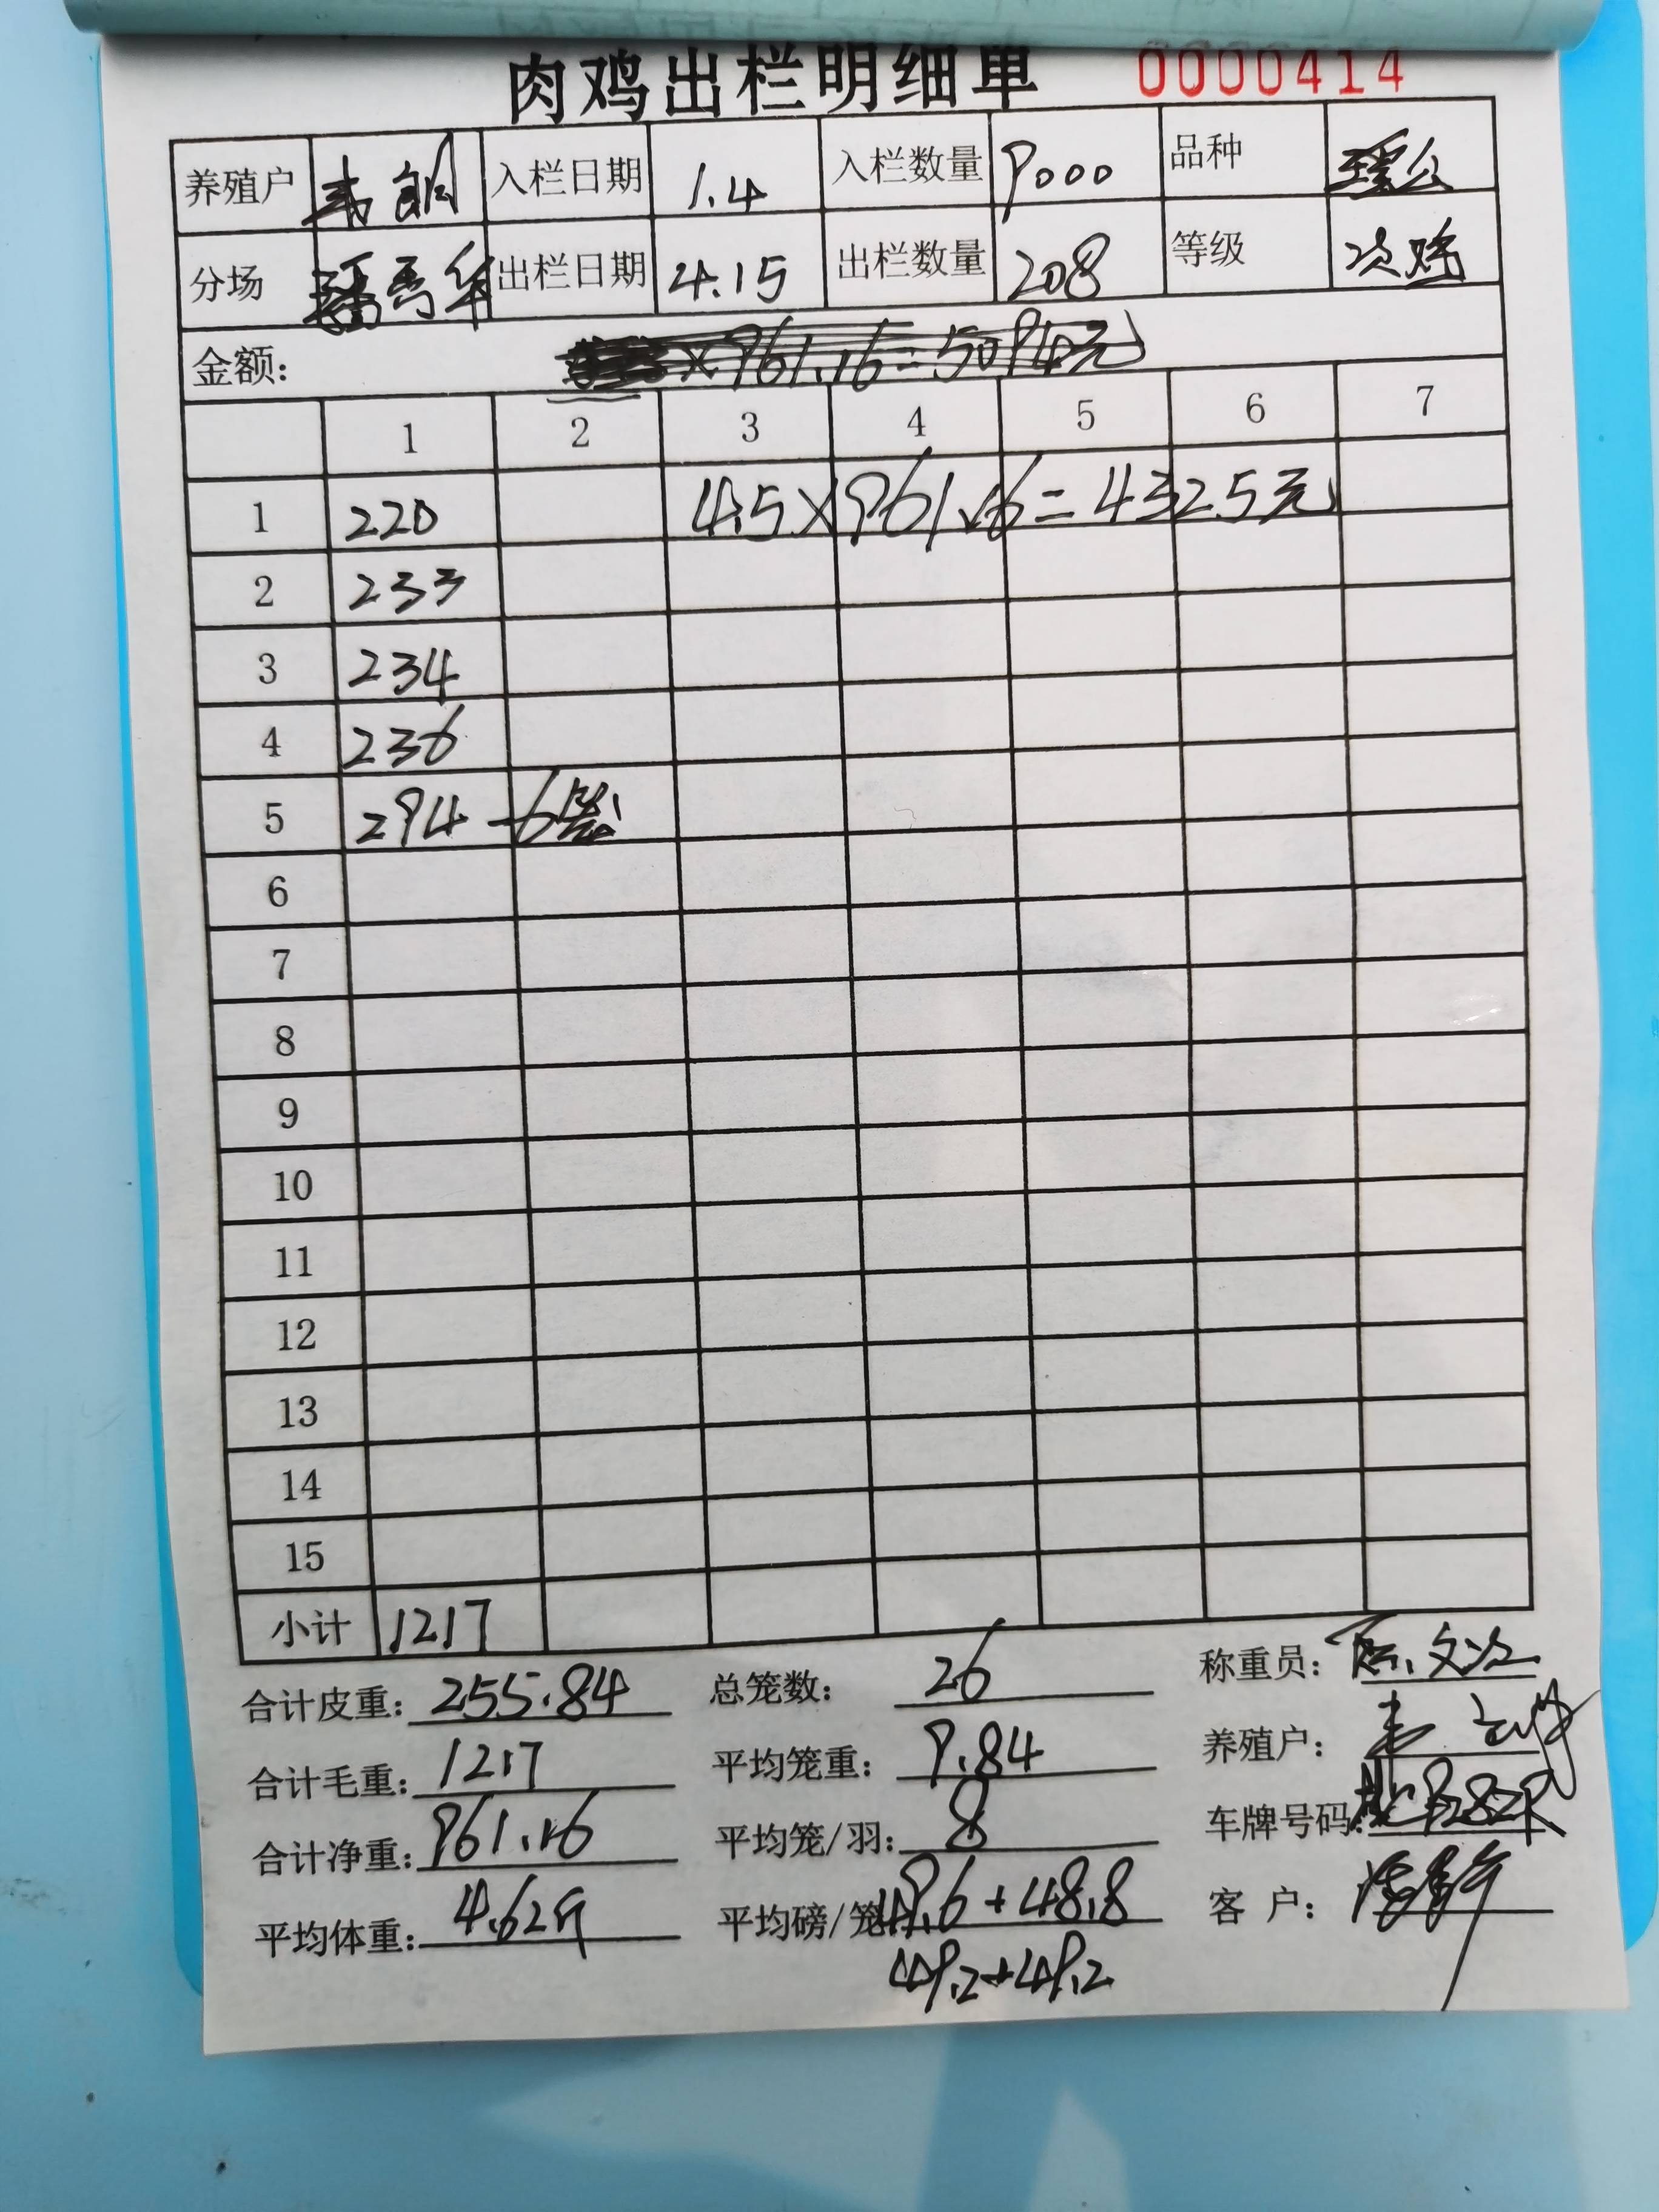 肉鸡出栏明细单 0000414
养殖户 韦朗 入栏日期 1.4 入栏数量 9000 品种 瑶公
分场 潘秀华 出栏日期 4.15 出栏数量 208 等级 次鸡
金额: ×961.16=5094元
1 2 3 4 5 6 7
1 220 4.5×961.16=4325元
2 233
3 234
4 236
5 294-6笼
6
7
8
9
10
11
12
13
14
15
小计 1217
合计皮重: 255.84 总笼数: 26 称重员:
合计毛重: 1217 平均笼重: 9.84 养殖户:
合计净重: 961.16 平均笼/羽: 8 车牌号码:
平均体重: 4.62斤 平均磅/笼: 49.6+48.8 客 户:
49.2+49.2